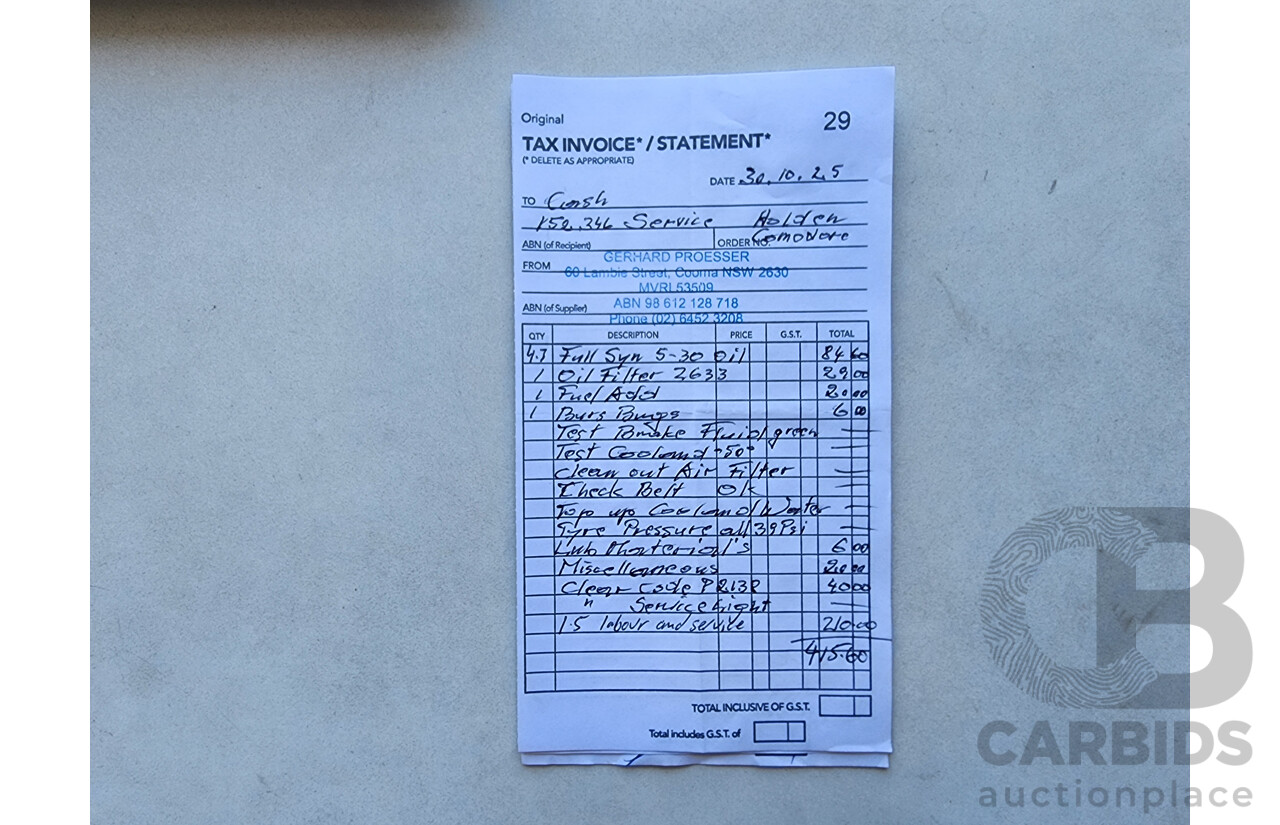 Original
29
TAX INVOICE* / STATEMENT*
(* DELETE AS APPROPRIATE)
DATE 30.10.25
TO Cash
152.346 Service Holden
ABN (of Recipient) ORDER NO. Comodore
GERHARD PROESSER
FROM 60 Lambie Street, Cooma NSW 2630
MVRL53509
ABN (of Supplier) ABN 98 612 128 718
Phone (02) 6452 3208
QTY DESCRIPTION PRICE G.S.T. TOTAL
4.7 Full Syn 5-30 Oil 84 60
1 Oil Filter 2633 29 00
1 Fuel Add 20 00
1 6 00
Test Brake Fluid green —
Test Cooland -50° —
Clean out Air Filter —
Check Belt Ok —
Top up Cooland/Water —
Tyre Pressure all 39 Psi —
Lub Material's 6 00
Miscellaneous 20 00
Clear Code P2138 40 00
" Service Light —
1.5 labour and service 210.00
415.60
TOTAL INCLUSIVE OF G.S.T.
Total includes G.S.T. of
CB
CARBIDS
auctionplace